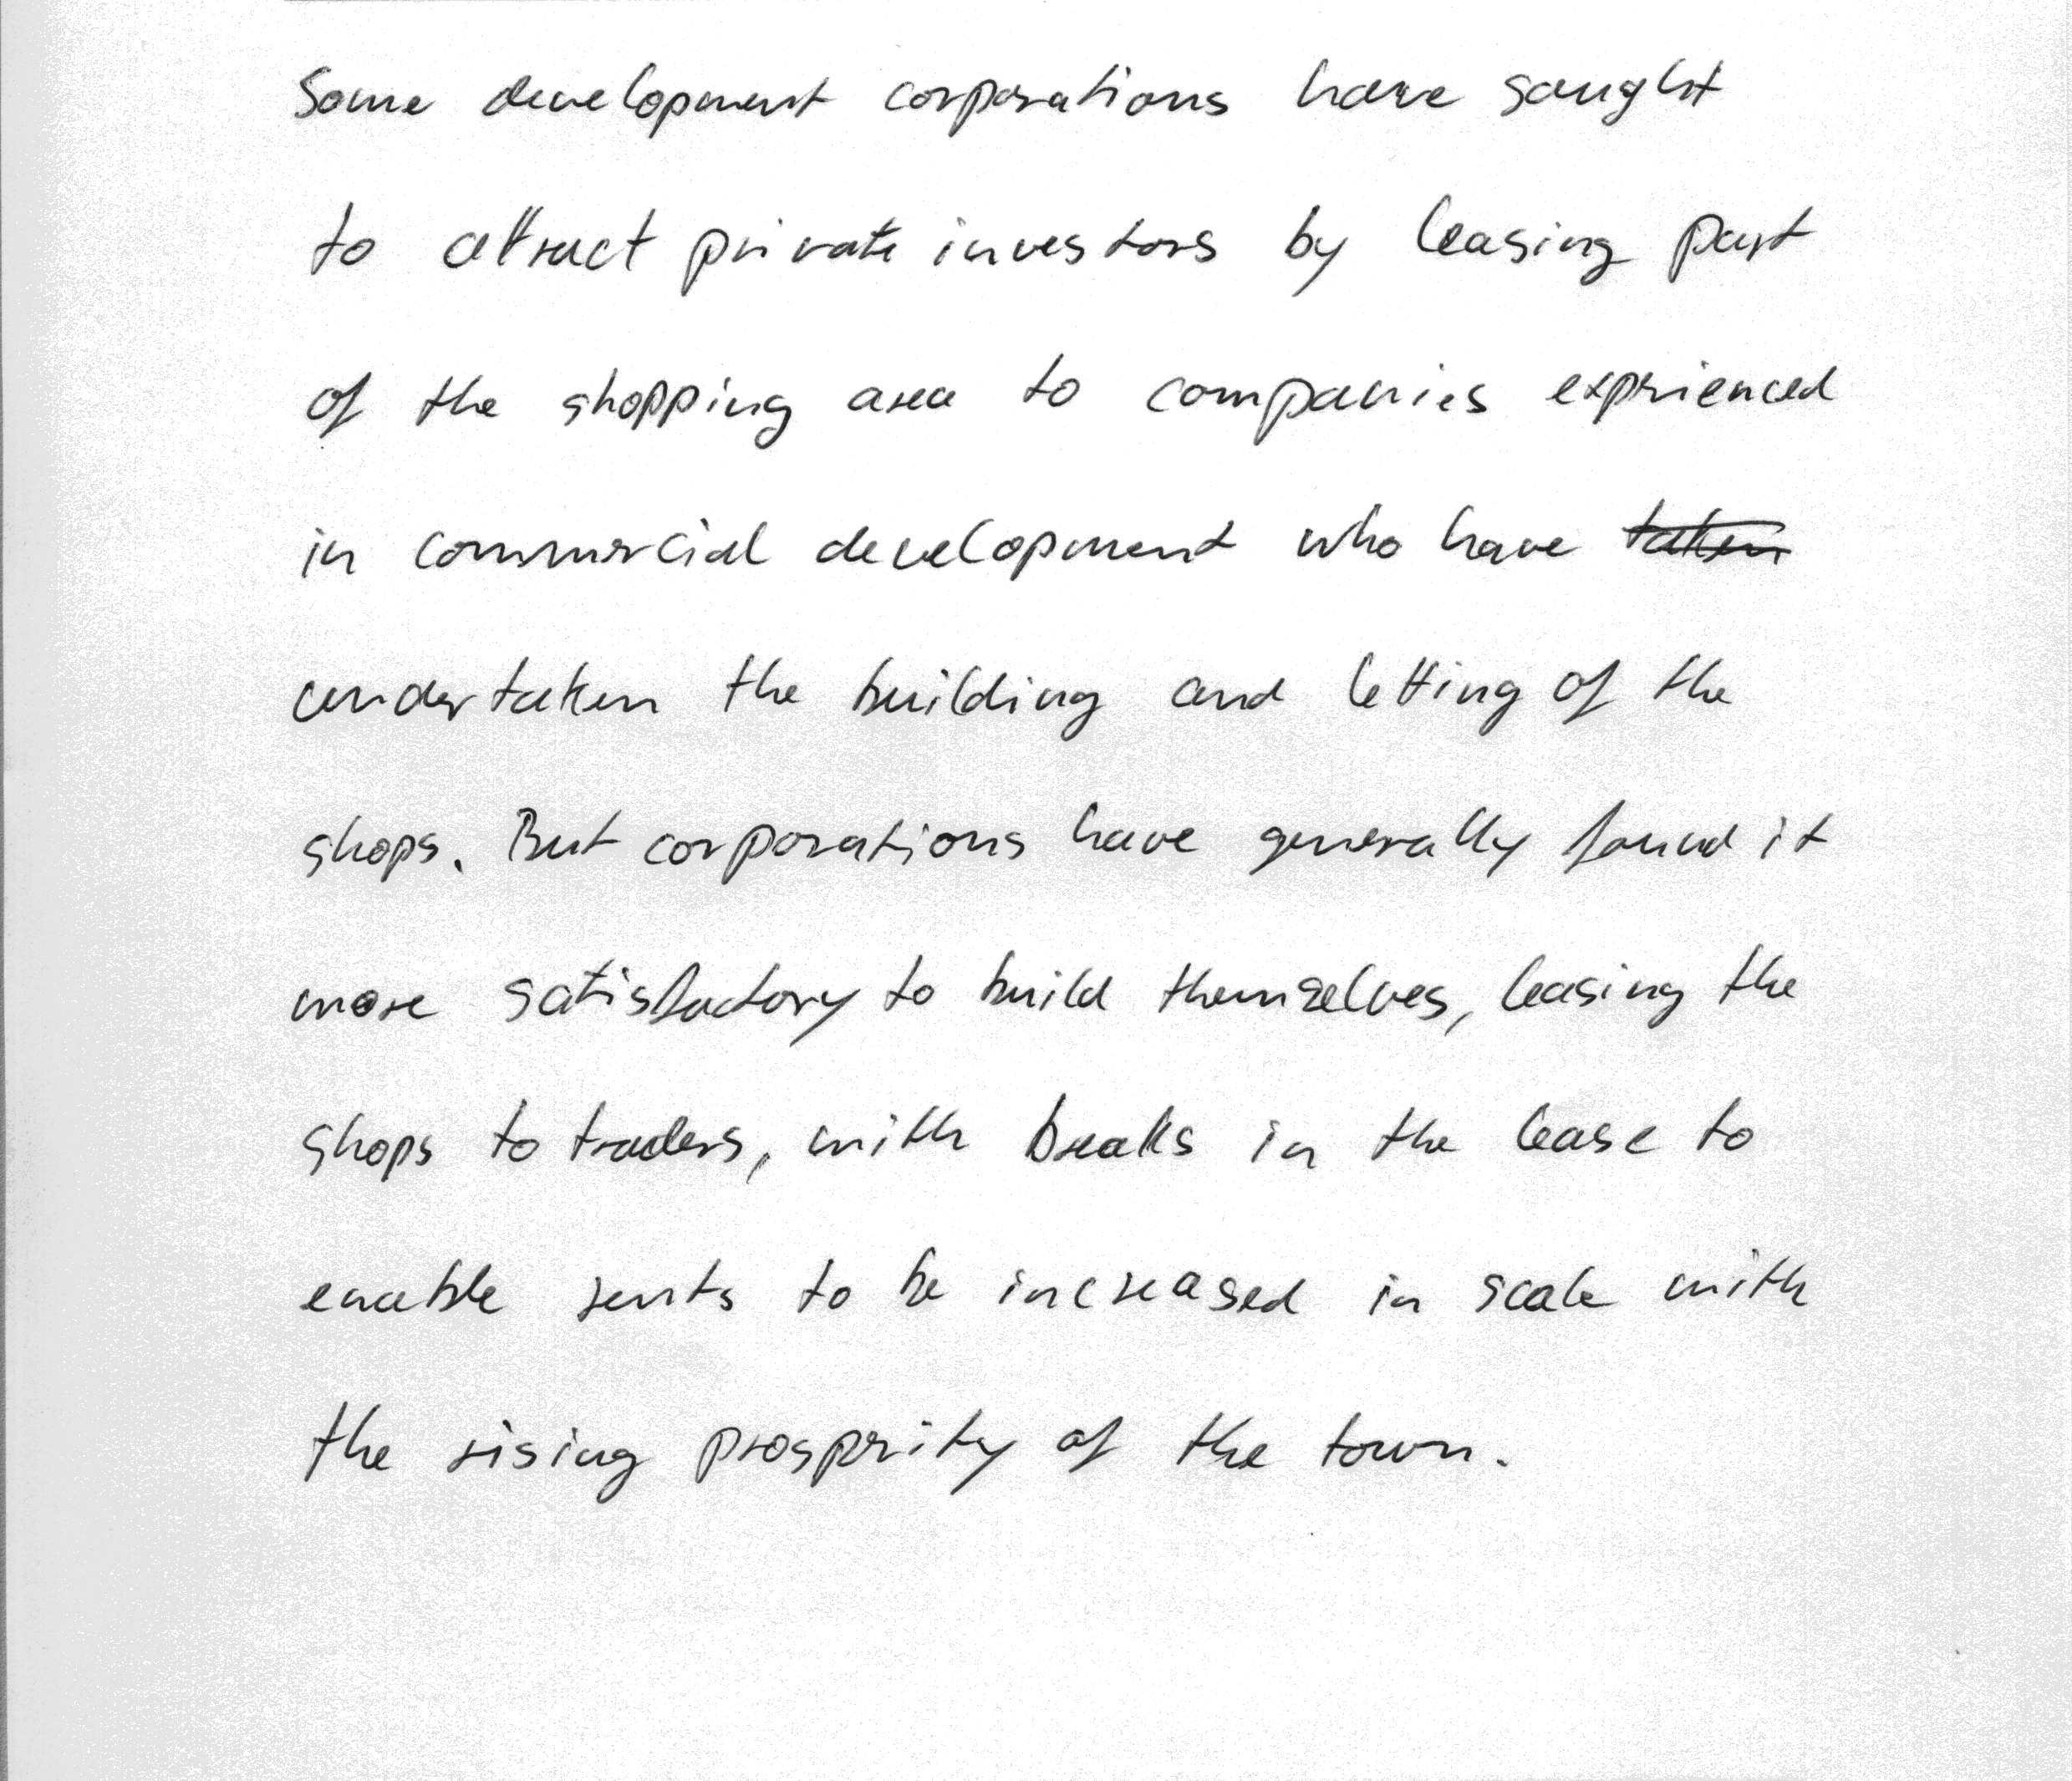 Some development corporations have sought
to attract private investors by leasing part
of the shopping area to companies exprienced
in commercial development who have taken
undertaken the building and letting of the
shops. But corporations have generally found it
more satisfactory to build themselves, leasing the
shops to traders, with breaks in the lease to
enable rents to be increased in scale with
the rising prosperity of the town.